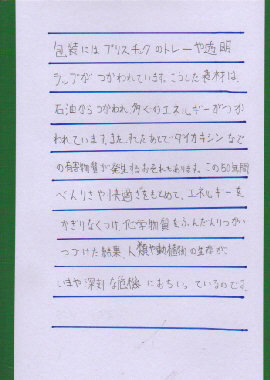 包装にはプラスチックのトレーや透明
ラップがつかわれています。こうした素材は、
石油からつかわれ、多くのエネルギーがつか
われています。また、すてたあとでダイオキシンなど
の有害物質が発生するおそれもあります。この50年間
べんりさや快適さをもとめて、エネルギーを
かぎりなくつかい、化学物質をふんだんにつかい
つづけた結果、人類や動植物の生存が、
いまや深刻な危機におちいっているのです。